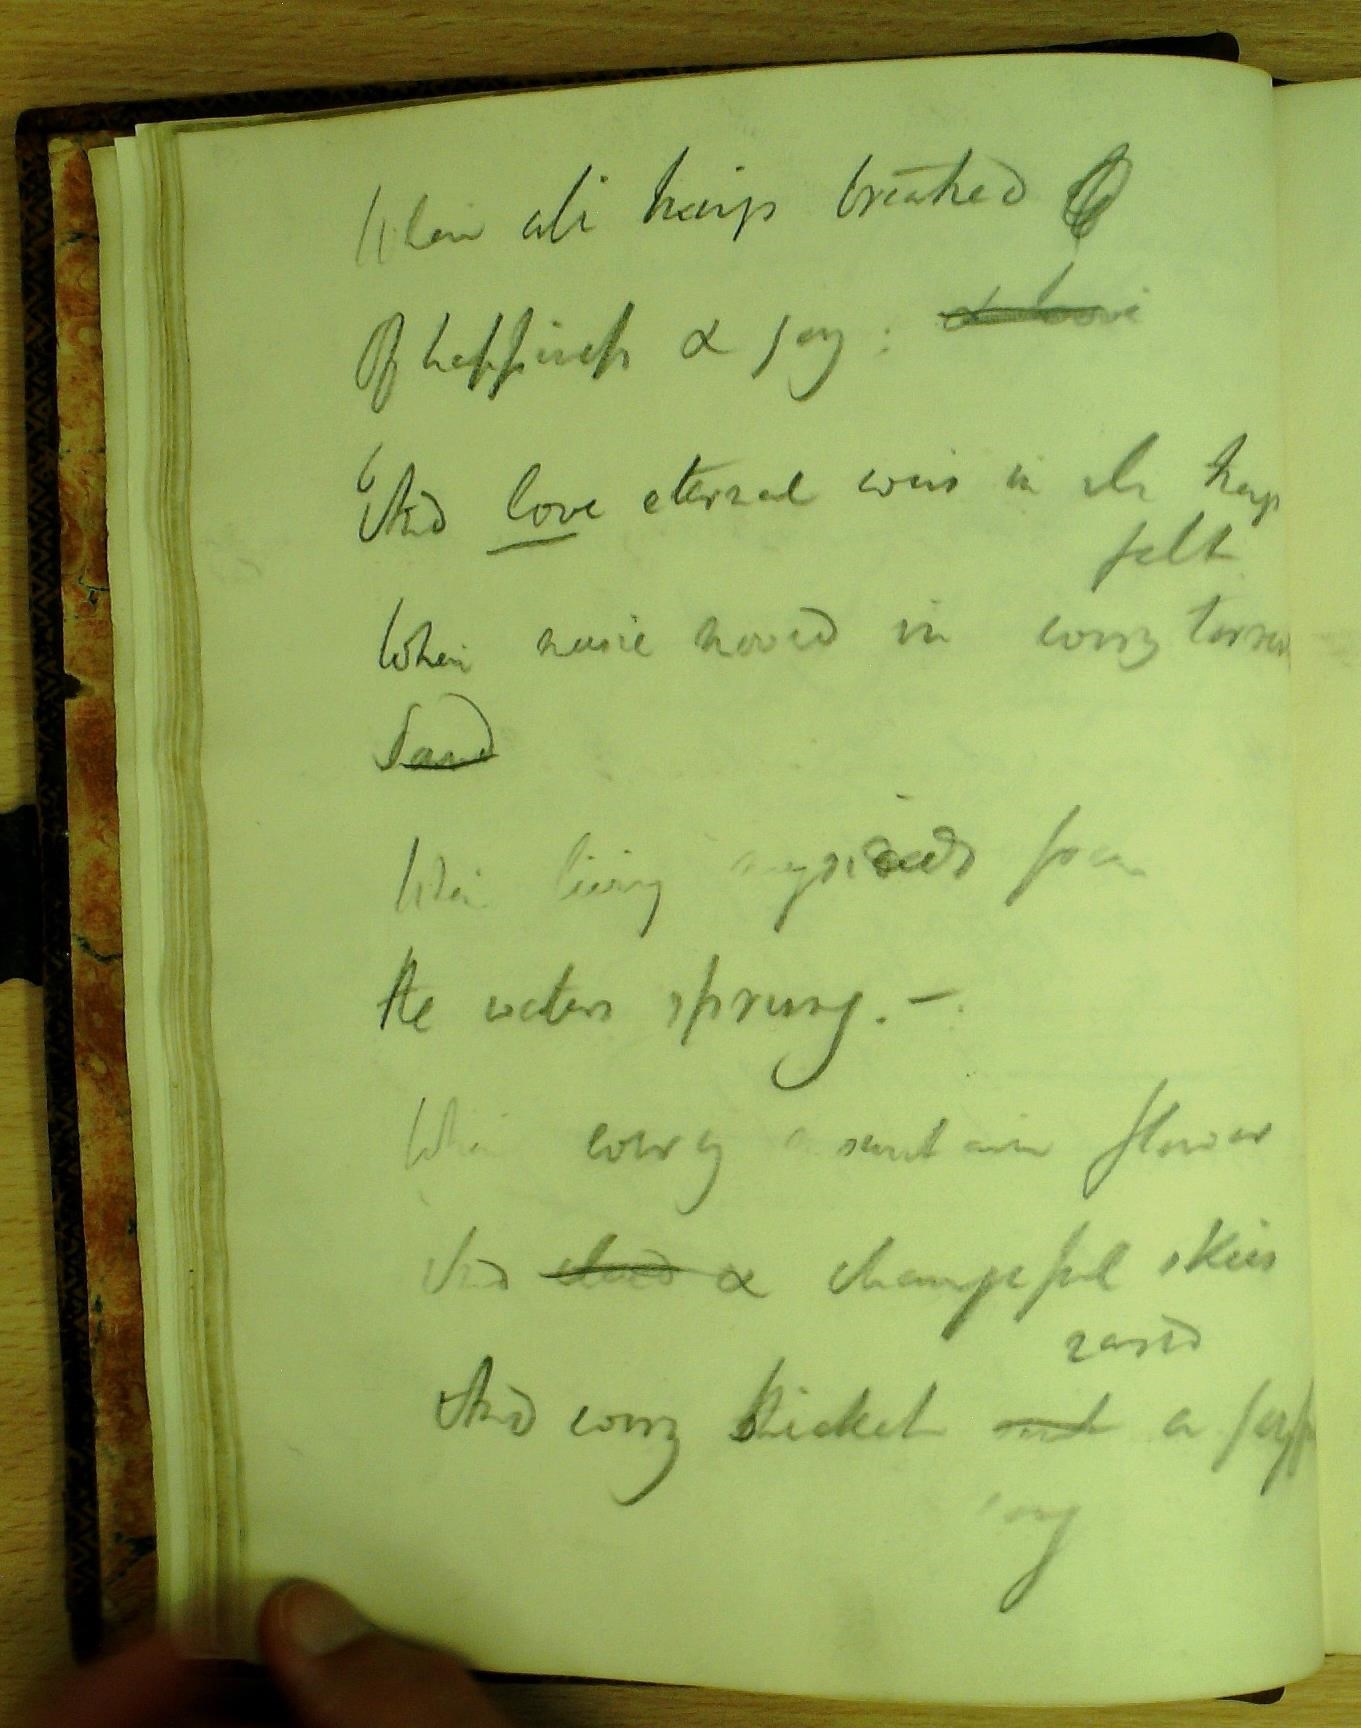 When all things breathed
Of happiness & joy: & love
And love eternal was in all things
felt
When music moved in every torrent
Sand
When living myriads from
the waters sprung. —
When every mountain flower
And cloud & changeful skies
raised
And every thicket a joyful
song